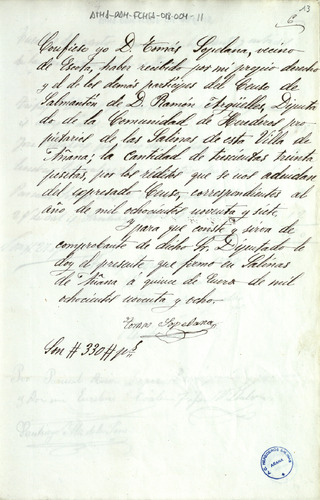 ATHA-DAH-FCHSA-018-004-11
13
6
Confieso yo D. Tomás Sopelana, vecino
de Escota, haber recibido por mi propio derecho
y el de los demás partícipes del Censo de
Salmantón de D. Ramón Argüelles, Diputa
do de la Comunidad de Herederos pro
pietarios de las Salinas de esta Villa de
Añana; la cantidad de trescientas treinta
pesetas, por los réditos que se nos adeudan
del espresado Censo, correspondientes al
año de mil ochocientos noventa y siete.
Y para que conste y sirva de
comprobante de dicho Sr. Diputado le
doy el presente que firmo en Salinas
de Añana á quince de Enero de mil
ochocientos noventa y ocho.
Tomas Sopelana
Son # 330 # pts
AÑANA